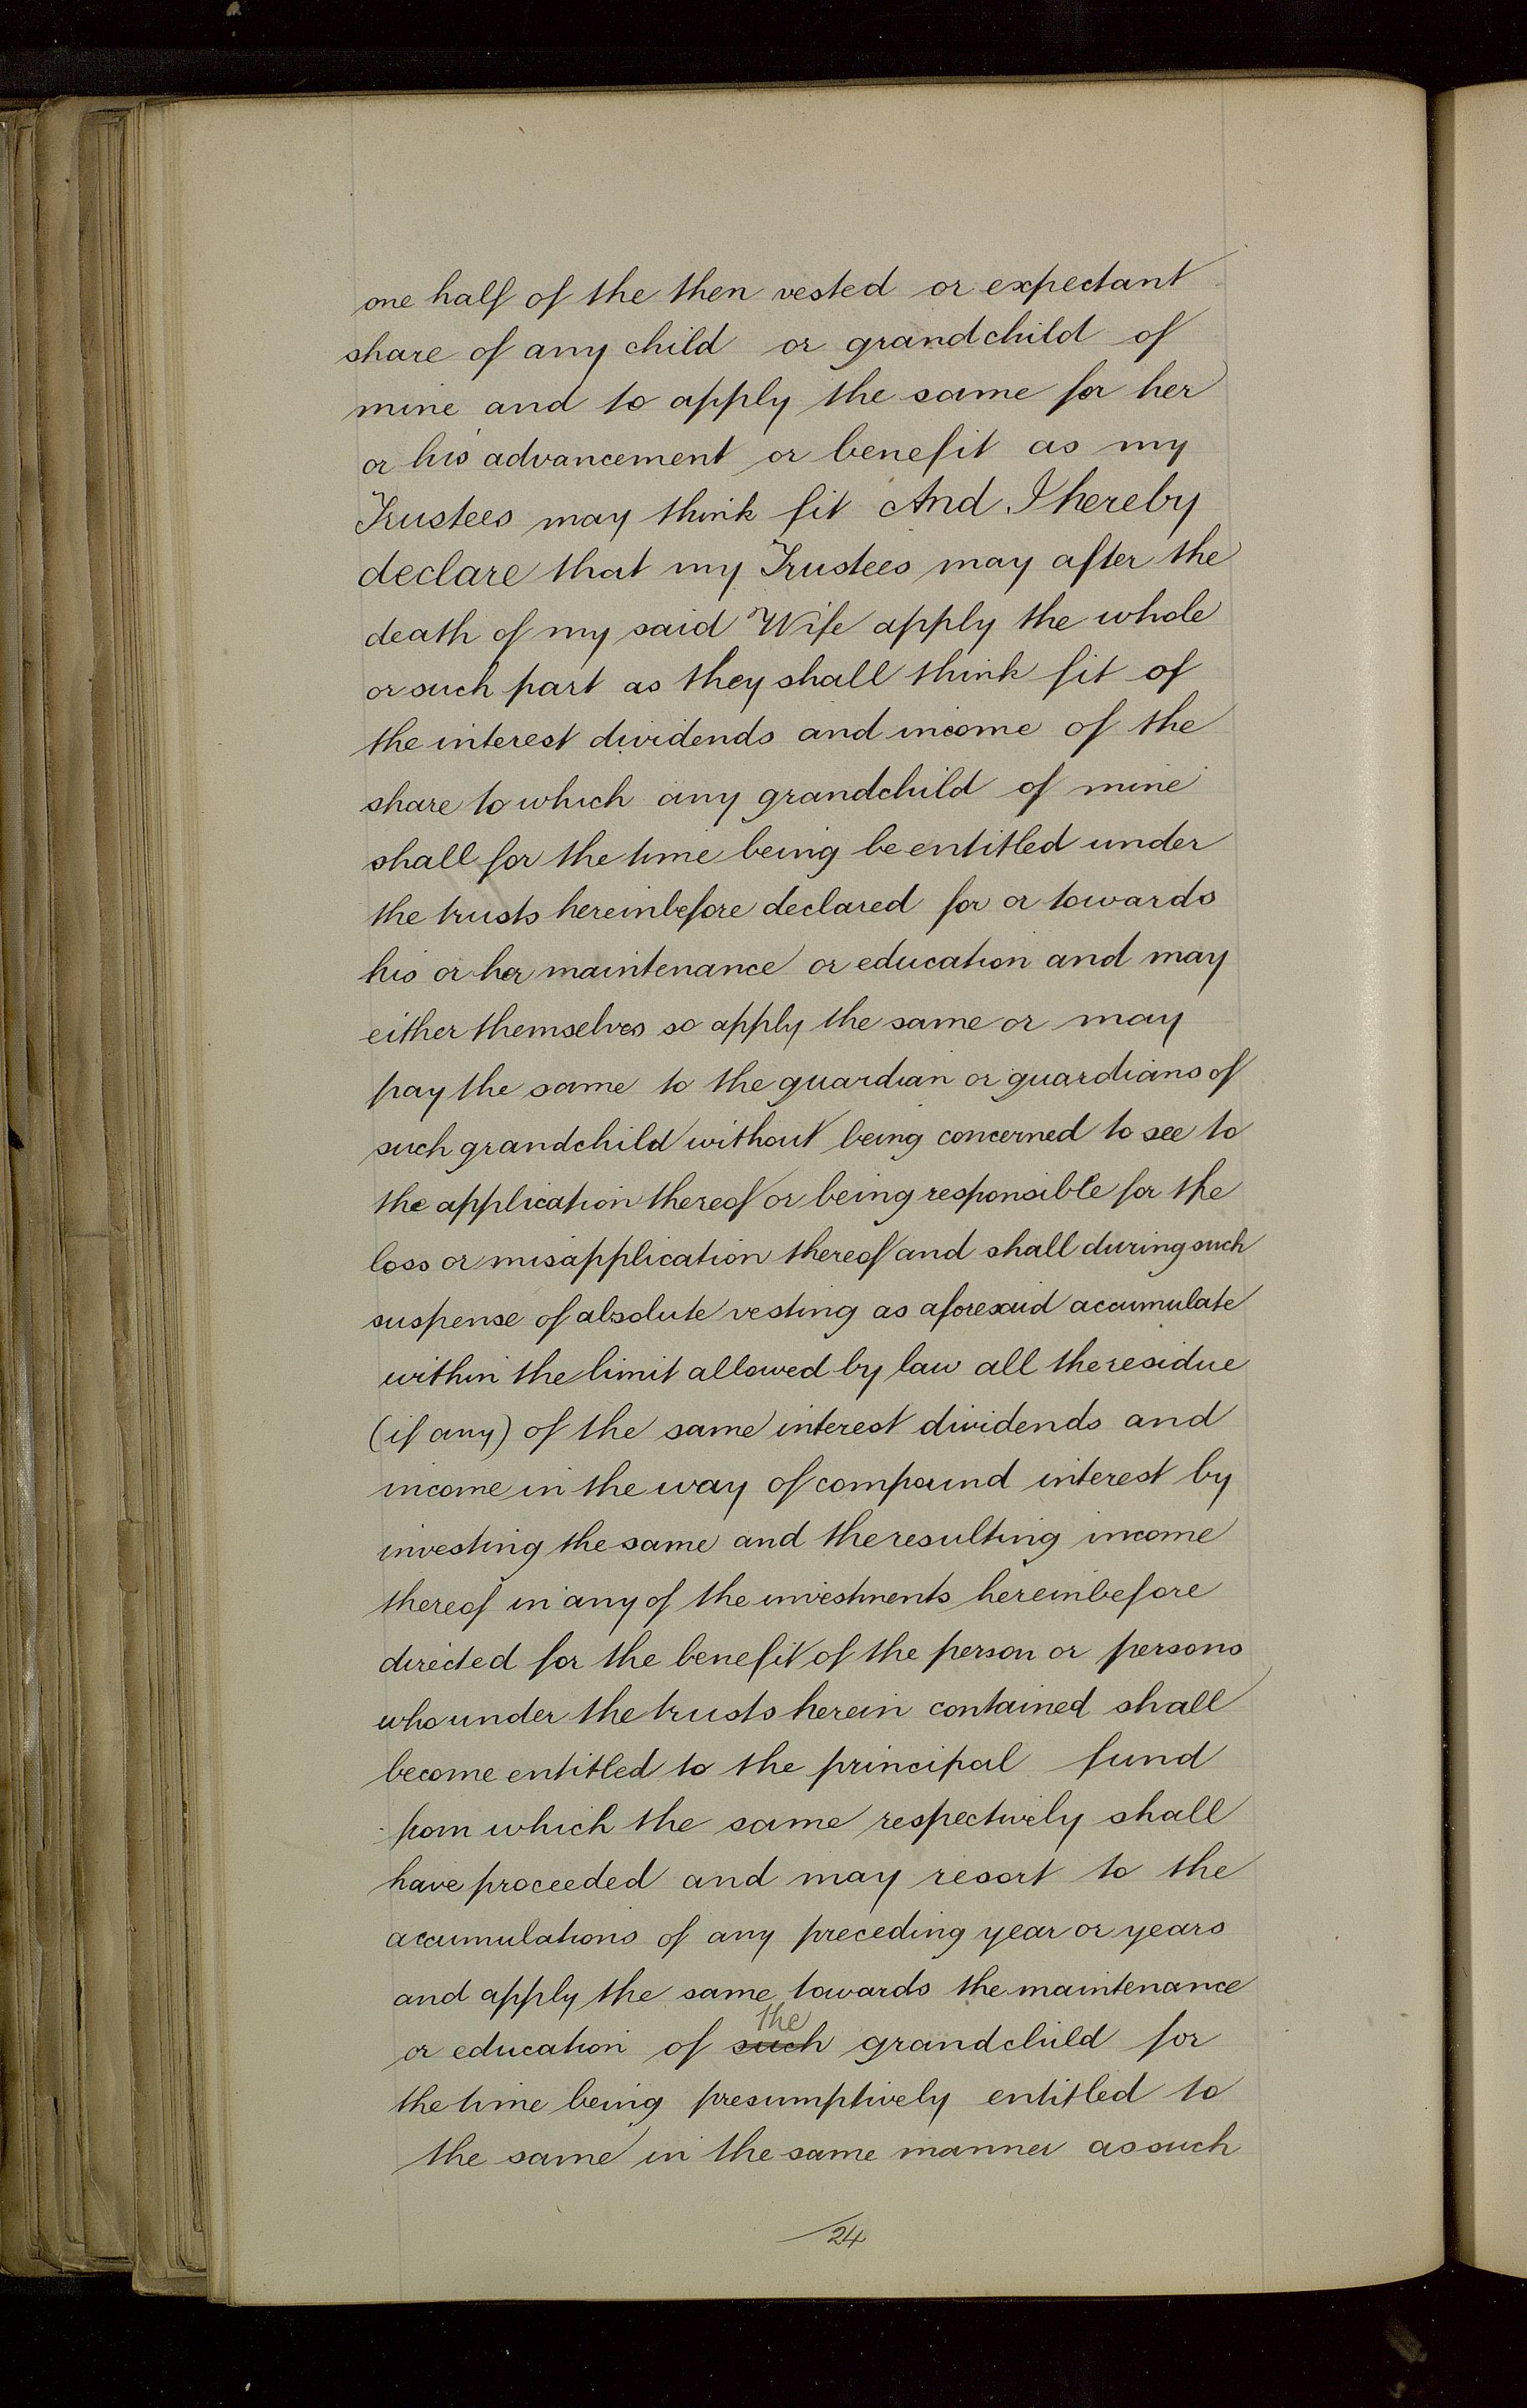 one half of the then vested or expectant
share of any child or grandchild of
mine and to apply the same for her
or his advancement or benefit as my
Trustees may think fit And I hereby
declare that my Trustees may after the
death of my said Wife apply the whole
or such part as they shall think fit of
the interest dividends and income of the
share to which any grandchild of mine
shall for the time being be entitled under
the trusts hereinbefore declared for or towards
his or her maintenance or education and may
either themselves so apply the same or may
pay the same to the guardian or guardians of
such grandchild without being concerned to see to
the application thereof or being responsible for the
loss or misapplication thereof and shall during such
suspense of absolute vesting as aforesaid accumulate
within the limit allowed by law all the residue
(if any) of the same interest dividends and
income in the way of compound interest by
investing the same and the resulting income
thereof in any of the investments hereinbefore
directed for the benefit of the person or persons
who under the trusts herein contained shall
become entitled to the principal fund
from which the same respectively shall
have proceeded and may resort to the
accumulations of any preceding year or years
and apply the same towards the maintenance
the
or education of such grandchild for
the time being presumptively entitled to
the same in the same manner as such
24